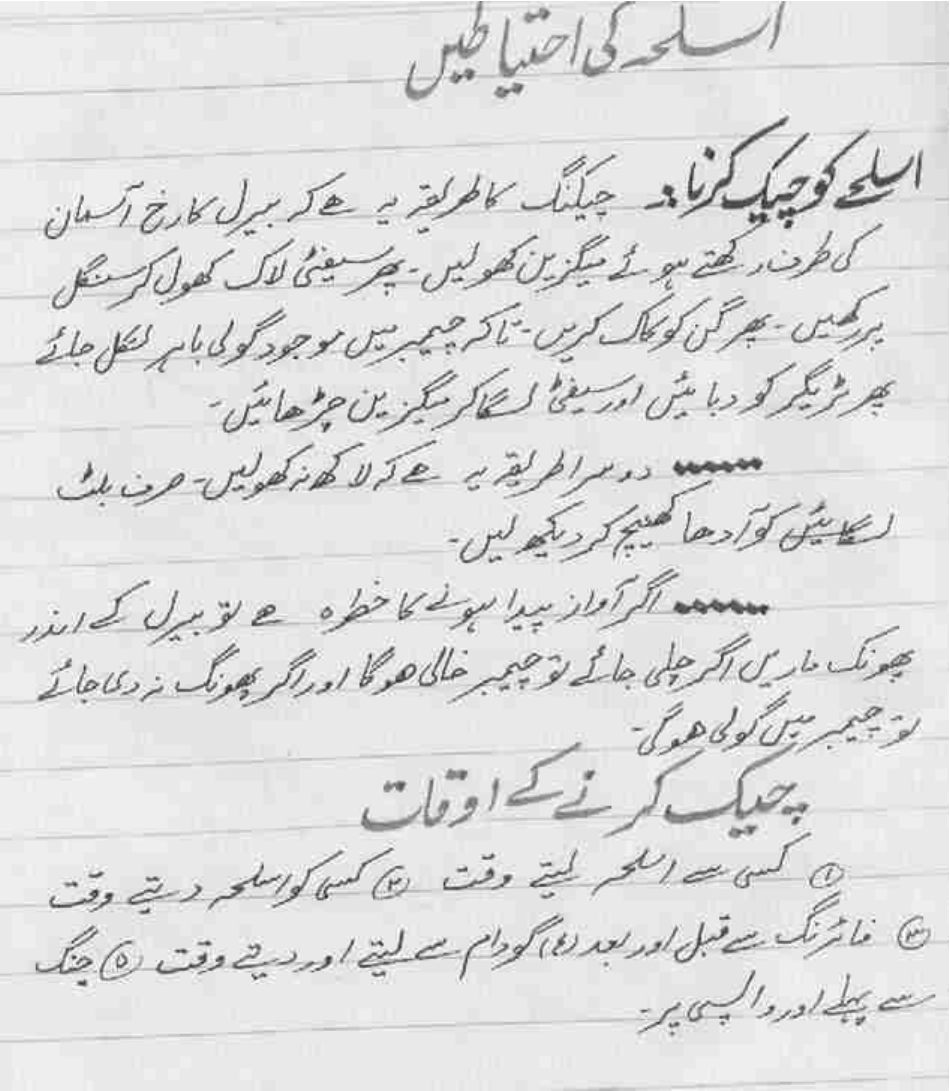 اسلحہ کی احتیاطیں
اسلحے کو چیک کرنا:۔ چیکنگ کا طریقہ یہ ھے کہ بیرل کا رخ آسمان
کی طرف رکھتے ہوئے میگزین کھولیں۔ پھر سیفٹی لاک کھول کر سنگل
پر رکھیں۔ پھر گن کو کاک کریں۔ تاکہ چیمبر میں موجود گولی باہر نکل جائے
پھر ٹریگر کو دبائیں اور سیفٹی لگا کر میگزین چڑھائیں۔
دوسرا طریقہ یہ ھے کہ لاکھ نہ کھولیں۔ صرف بلٹ
کو آدھا کھینچ کر دیکھ لیں۔
اگر آواز پیدا ہونے کا خطرہ ھے تو بیرل کے اندر
پھونک ماریں اگر چلی جائے تو چیمبر خالی ھوگا اور اگر پھونگ نہ دی جائے
تو چیمبر میں گولی ھوگی۔
چیک کرنے کے اوقات
① کسی سے اسلحہ لیتے وقت ② کسی کو اسلحہ دیتے وقت
③ فائرنگ سے قبل اور بعد (۴) گودام سے لیتے اور دیتے وقت ⑤ جنگ
سے پہلے اور واپسی پر۔